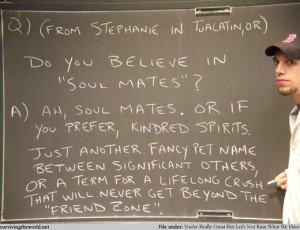 Q) (FROM STEPHANIE IN TUALATIN, OR)
DO YOU BELIEVE IN
"SOUL MATES"?
A) AH, SOUL MATES. OR IF
YOU PREFER, KINDRED SPIRITS.
JUST ANOTHER FANCY PET NAME
BETWEEN SIGNIFICANT OTHERS,
OR A TERM FOR A LIFELONG CRUSH
THAT WILL NEVER GET BEYOND THE
"FRIEND ZONE".
survivingtheworld.net
File under: You're Really Great But Let's Not Ruin What We Have